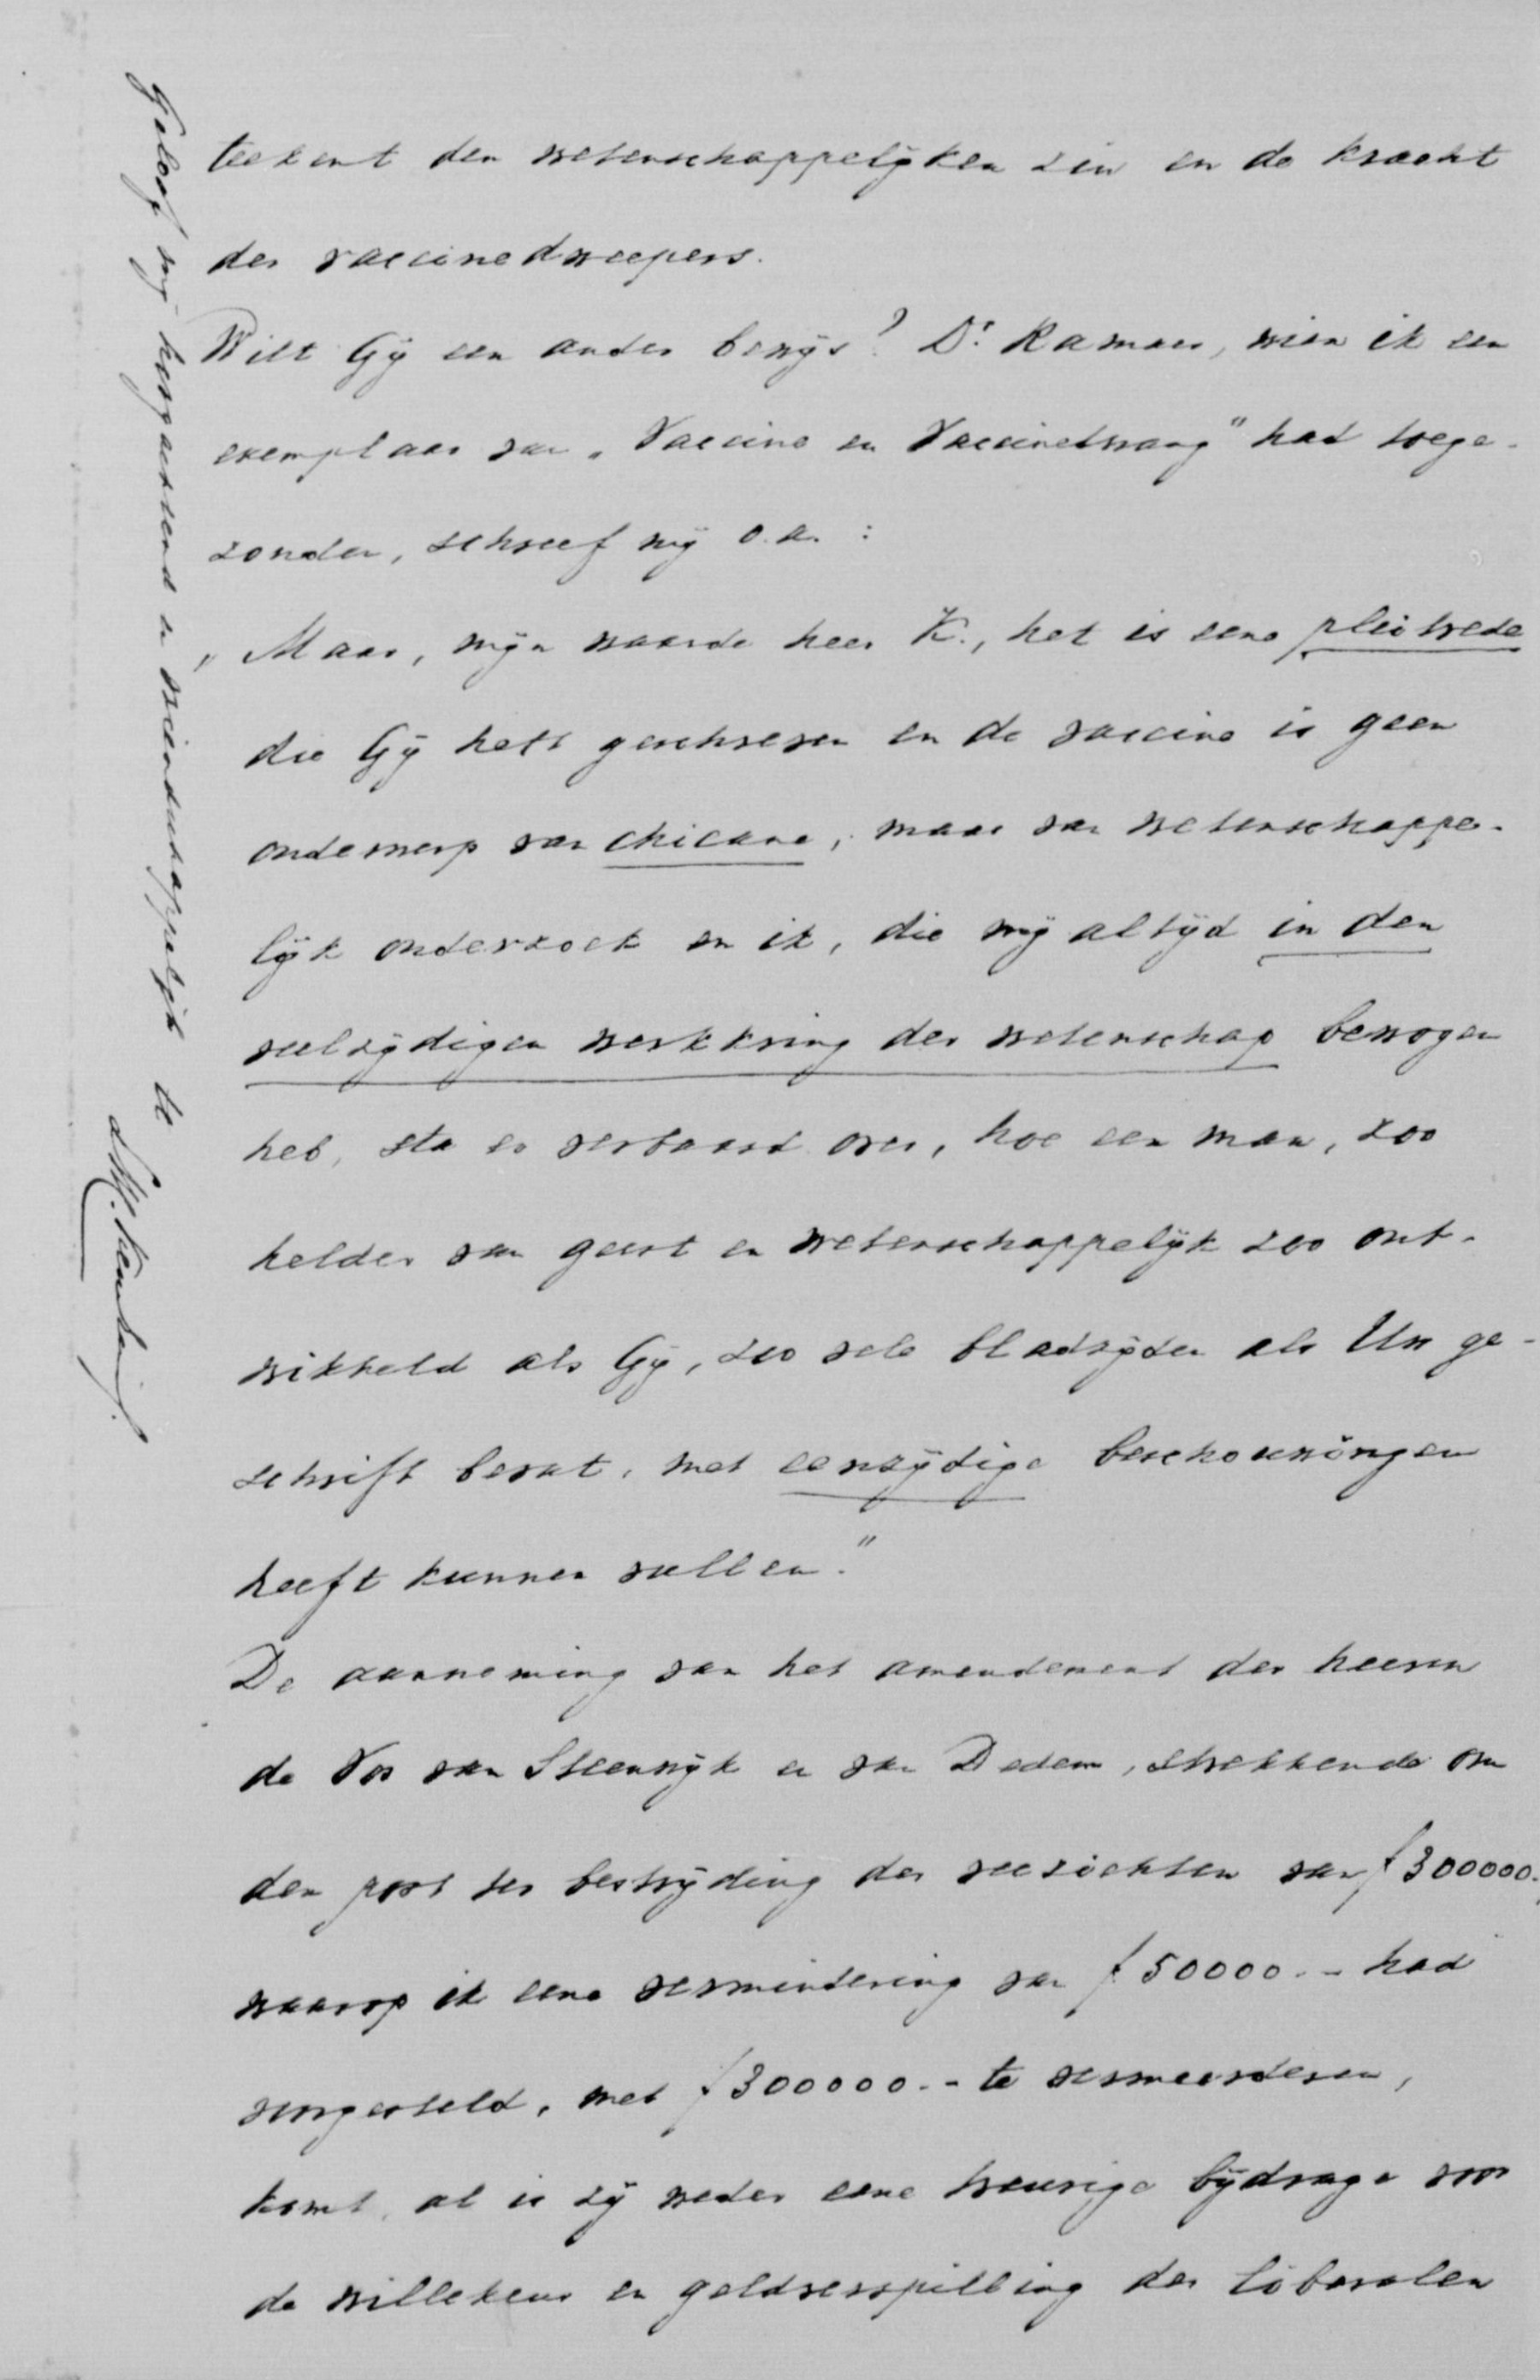 teekent den wetenschappelijken zin en de kracht
der vaccinedweepers.
Wilt Gij een ander bewijs? Dr. Ramaer, wien ik een
exemplaar van „Vaccine en Vaccinedwang" had toege-
zonden, schreef mij o.a.:
„Maar, mijn waarde heer K., het is eene pleitrede
die Gij hebt geschreven en de vaccine is geen
onderwerp van chicane, maar van wetenschappe-
lijk onderzoek en ik, die mij altijd in den
veelzijdigen werkkring der wetenschap bewogen
heb, sta er verbaasd over, hoe een man, zoo
helder van geest en wetenschappelijk zoo ont-
wikkeld als Gij, zoo vele bladzijden als Uw ge-
schrift bevat, met eenzijdige beschouwingen
heeft kunnen vullen."
De aanneming van het amendement der heeren
de Vos van Steenwijk en van Dedem, strekkende om
den post ter bestrijding der veeziekten van f 300000.-
waarop ik eene vermindering van f 50000.- had
voorgesteld, met f 300000.- te vermeerderen,
komt, al is zij weder eene treurige bijdrage voor
de willekeur en geldverspilling der liberalen
Geloof mij hoogachtend en vriendschappelijk de